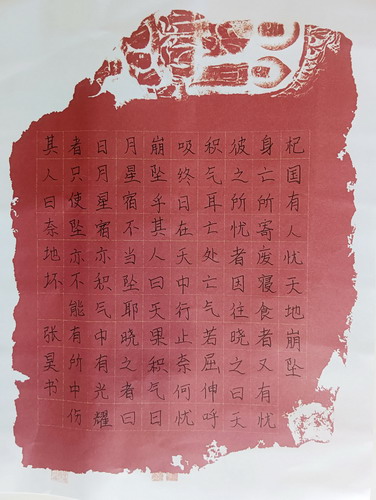 杞国有人忧天地崩坠
身亡所寄废寝食者又有忧
彼之所忧者因往晓之曰天
积气耳亡处亡气若屈伸呼
吸终日在天中行止奈何忧
崩坠乎其人曰天果积气日
月星宿不当坠耶晓之者曰
日月星宿亦积气中有光耀
者只使坠亦不能有所中伤
其人曰奈地坏 张昊书